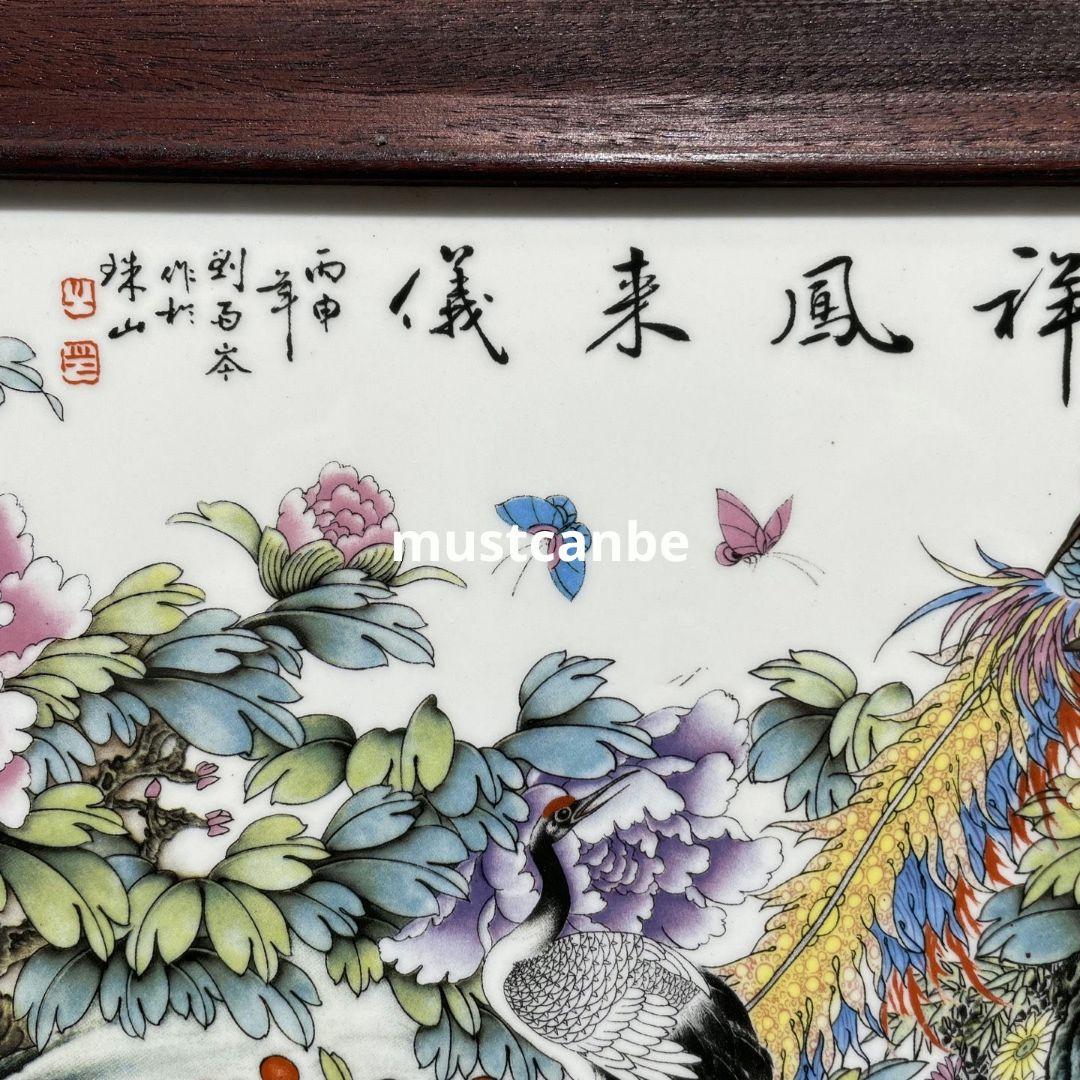 祥鳳来儀
丙申
年
劉雨岑
作於
珠山
mustcanbe